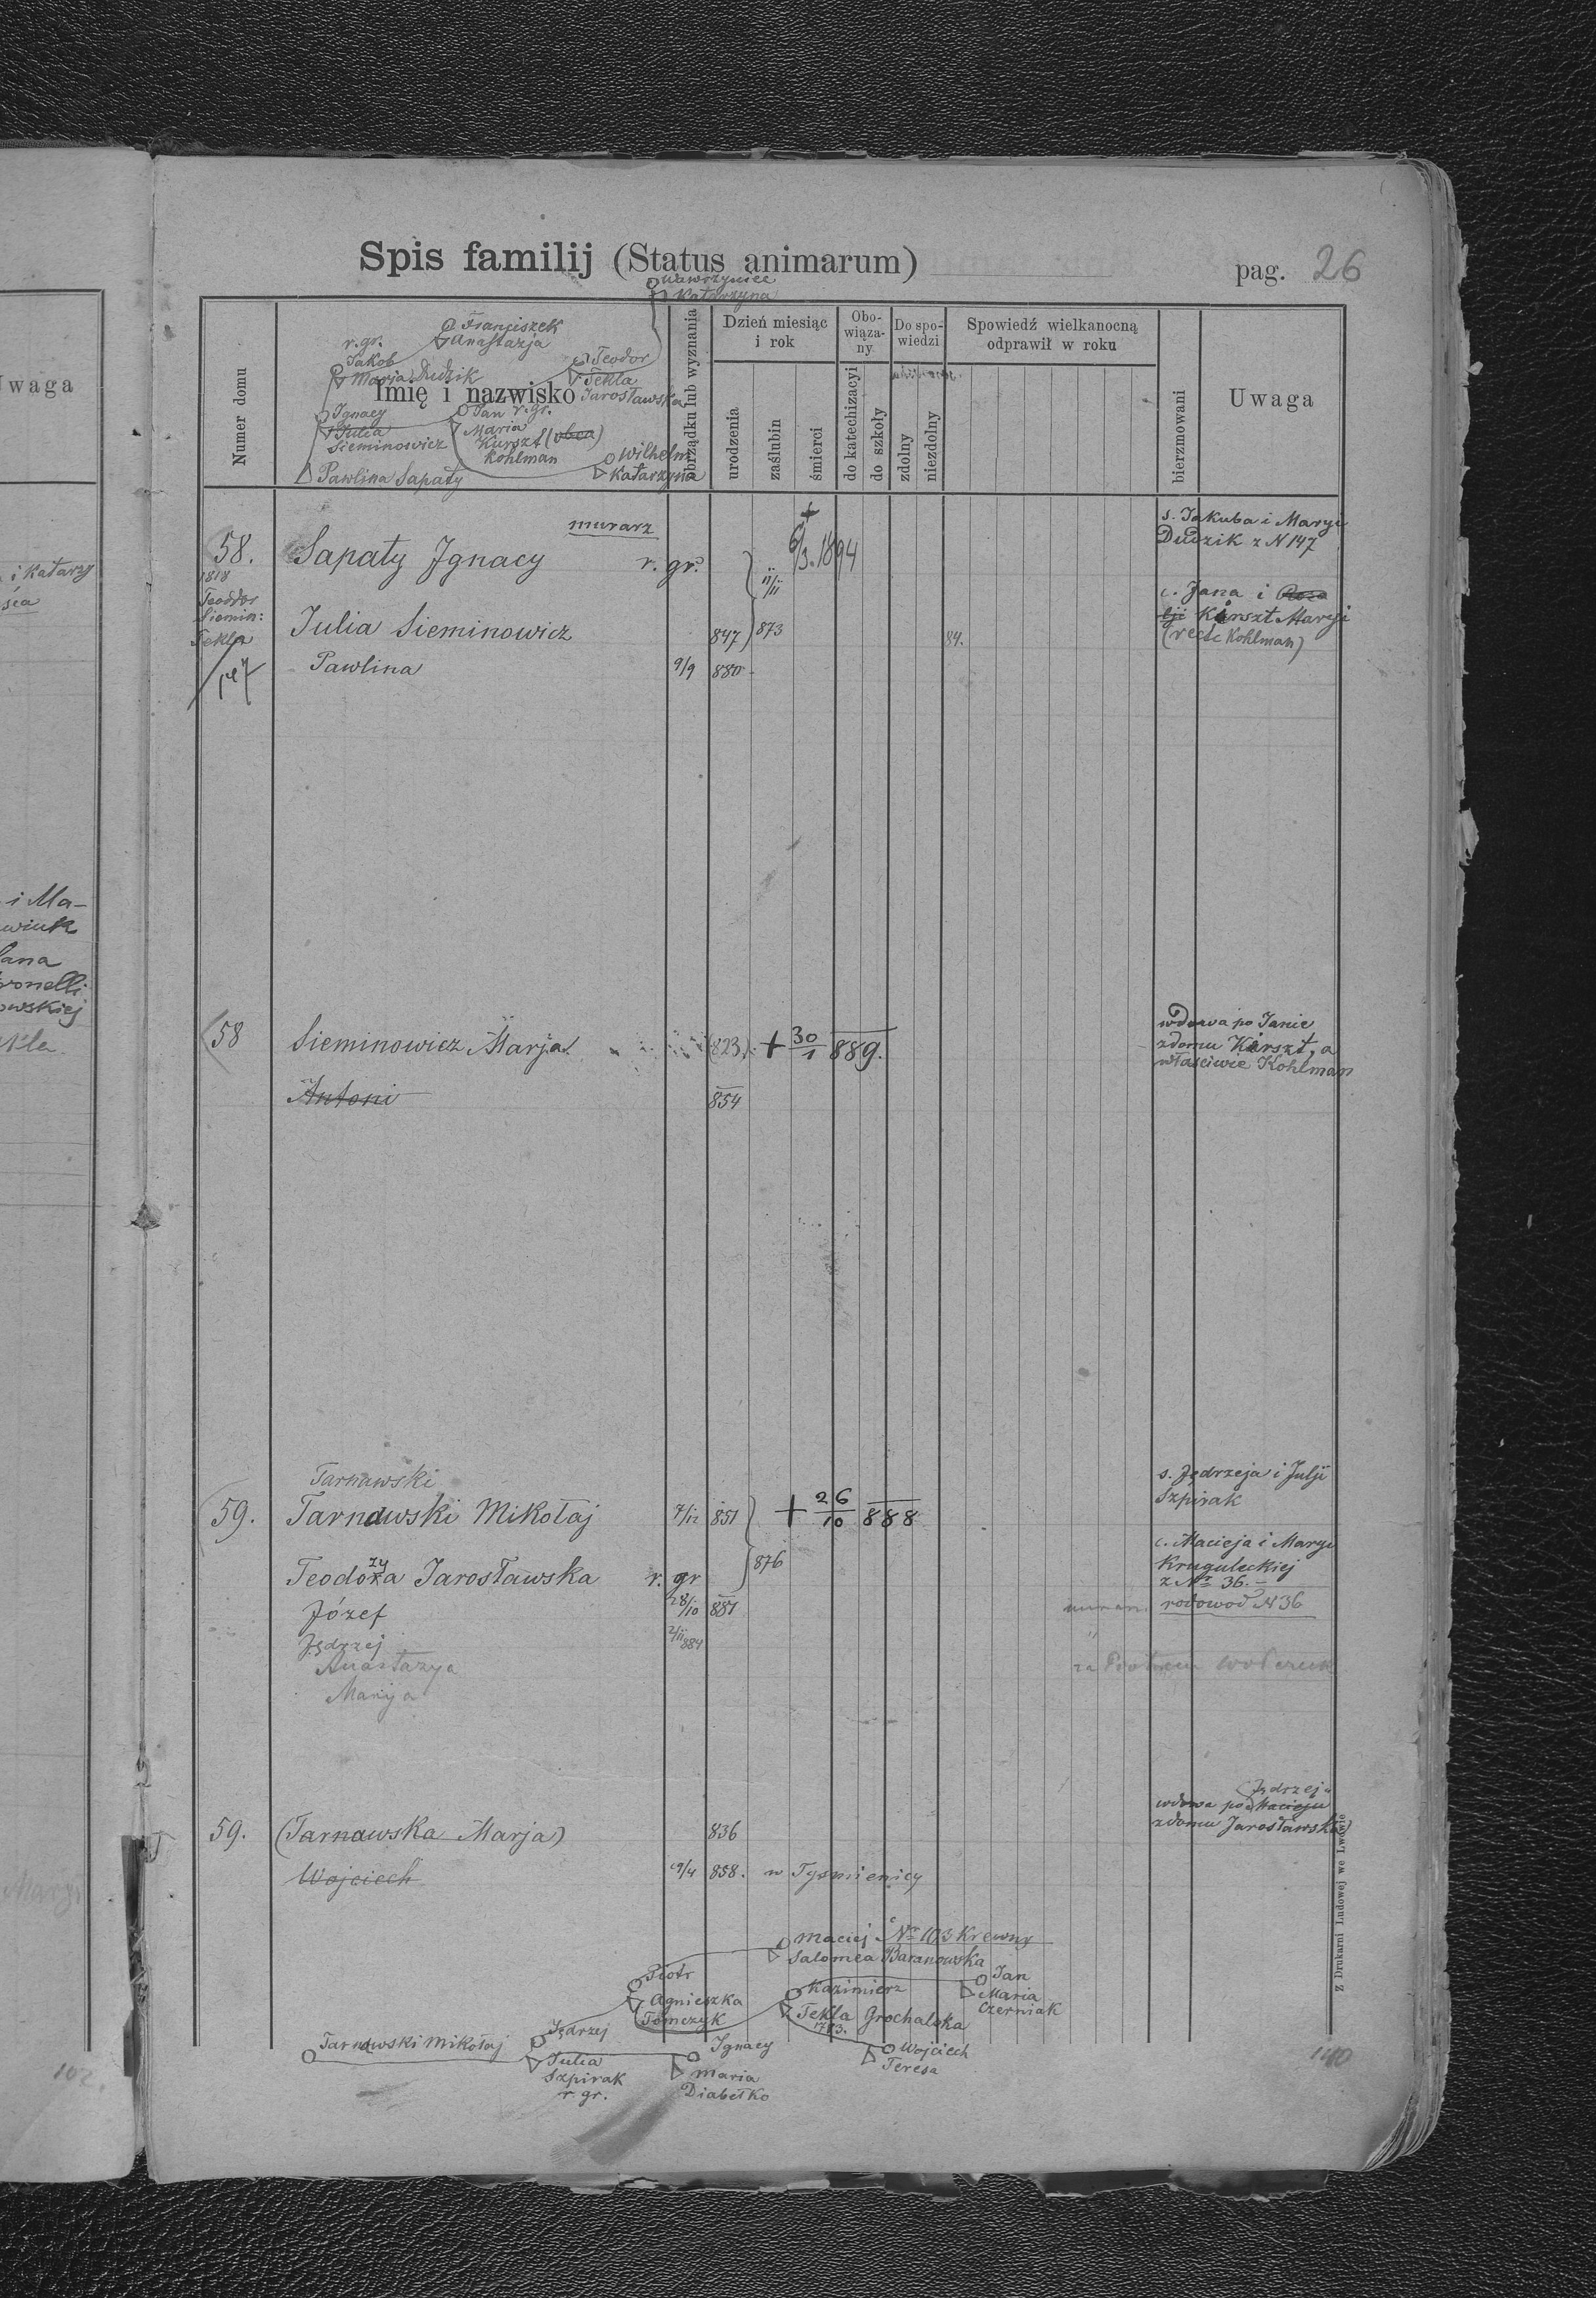 Spis familij (Status animarum)
pag. 26
Wawrzyniec
Katarzyna
Numer domu
Imię i nazwisko
obrządku lub wyznania
Dzień miesiąc i rok
urodzenia
zaślubin
śmierci
Obowiązany
do katechizacyi
do szkoły
Do spowiedzi
zdolny
niezdolny
Spowiedź wielkanocną odprawił w roku
bierzmowani
Uwaga
Franciszek
Anastazja
r. gr.
Jakob
Marja Dudzik
Teodor
Tekla
Jarosławska
Ignacy
Julia
Sieminowicz
Jan r. gr.
Maria
Kurszt
Kohlman
Wilhelm
Katarzyna
Pawlina Sapaty
murarz
58. Sapaty Ignacy r. gr. + 6/3. 1894 s. Jakuba i Maryi
Dudzik z N 147
1818
Teodor
Siemin:
Tekla
147
Julia Sieminowicz 847 11/11 873 84. c. Jana i
Kurszt Maryi
(recte Kohlman)
Pawlina 9/9 880
58 Sieminowicz Marja (823) + 30/1 889. wdowa po Janie
z domu Kurszt, a
właściwie Kohlman
Antoni 854
Tarnawski
59. Tarnawski Mikołaj 7/12 851 + 26/10 888 s. Jędrzeja i Julji
Szpirak
Teodozya Jarosławska r. gr 876 c. Macieja i Maryi
Kruguleckiej
z Nr 36.
Józef 28/10 881 rodowod N 36
Jędrzej 2/11 884
Anastazya za Piotrem
Marya
59. (Tarnawska Marja) 836 wdowa po Macieju Jędrzeju
z domu Jarosławska
Wojciech 9/4 858. w Tyśmienicy
Maciej Nr 103 Krewny
Salomea Baranowska
Piotr
Agnieszka
Tomczyk
Kazimierz
Tekla Grochalska
1783.
Jan
Maria
Czerniak
Tarnawski Mikołaj
Jędrzej
Julia
Szpirak
r. gr.
Ignacy
Maria
Diabełko
Wojciech
Teresa
140
Z Drukarni Ludowej we Lwowie
Uwaga
i Katarzy
i Ma-
wiuk
ronelli
owskiej
102.